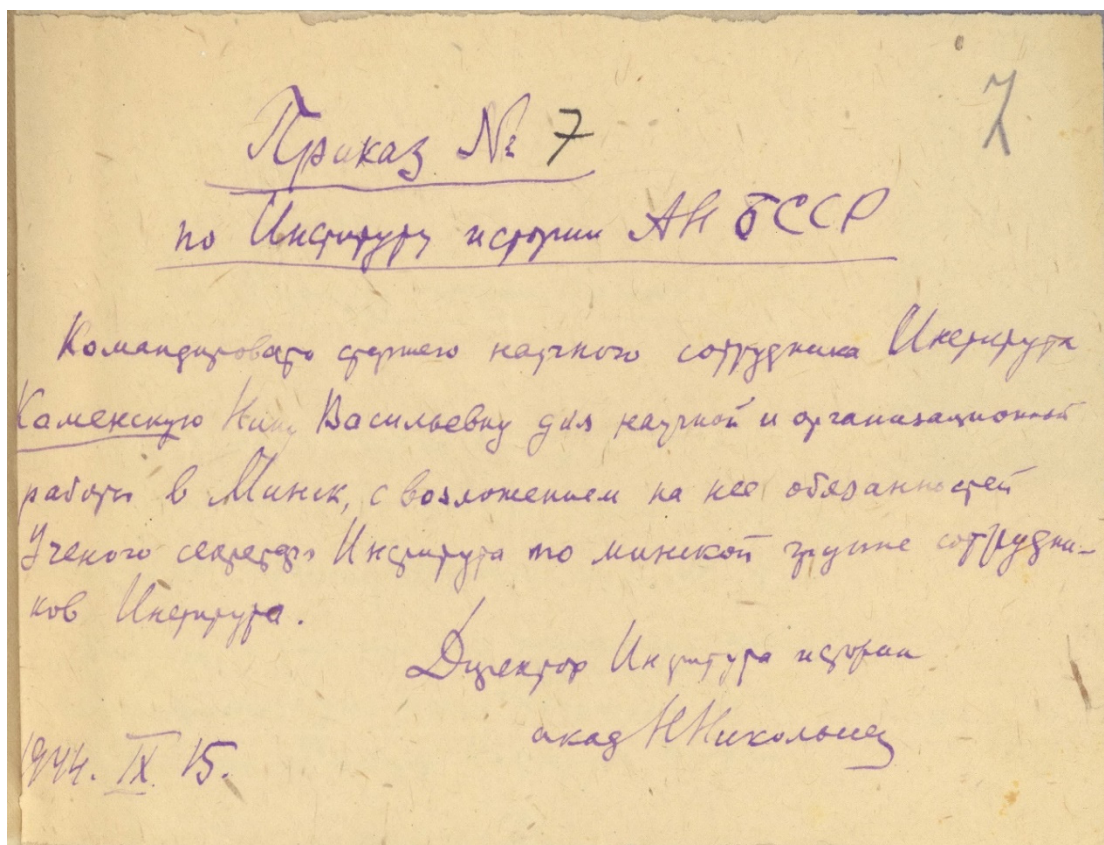 7
Приказ № 7
по Институту истории АН БССР
Командировать старшего научного сотрудника Института
Каменскую Нину Васильевну для научной и организационной
работы в Минск, с возложением на нее обязанностей
Ученого секретаря Института по минской группе сотрудни-
ков Института.
Директор Института истории
акад Н Никольский
1944. IX. 15.